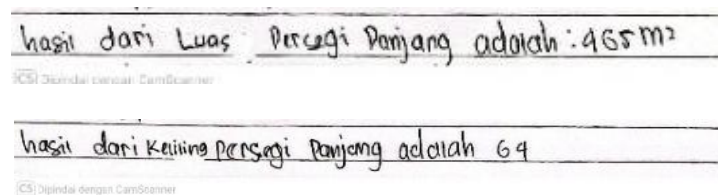 hasil dari Luas Persegi Panjang adalah : 465 m²
CS Dipindai dengan CamScanner
hasil dari Keliling persegi Panjang adalah 64
CS Dipindai dengan CamScanner